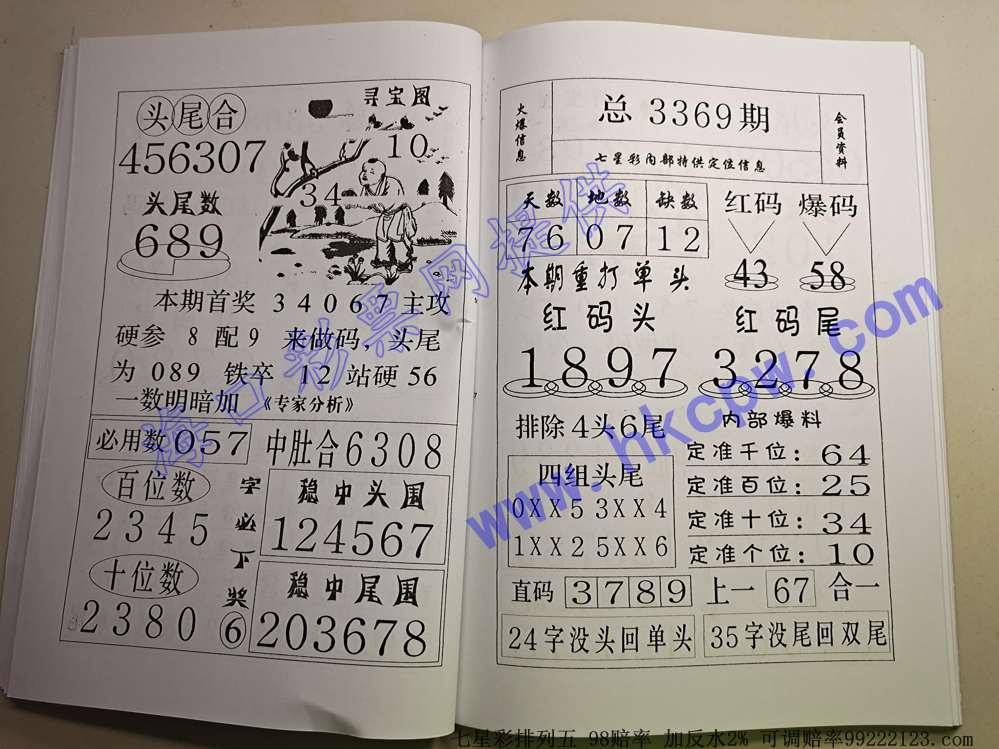 头尾合
456307
头尾数
689
寻宝图
10
34
本期首奖 3 4 0 6 7 主攻
硬参 8 配 9 来做码，头尾
为 089 铁卒 12 站硬 56
一数明暗加 《专家分析》
必用数 057
中肚合6308
百位数
2 3 4 5
十位数
2 3 8 0
字必下奖
6
稳中头围
124567
稳中尾围
203678
火爆信息
总 3369期
七星彩内部特供定位信息
会员资料
天数 地数 缺数
76 07 12
红码 爆码
43 58
本期重打单头
红码头
1897
红码尾
3278
排除4头6尾
内部爆料
四组头尾
0XX5 3XX4
1XX2 5XX6
定准千位：64
定准百位：25
定准十位：34
定准个位：10
直码 3789 上一 67 合一
24字没头回单头
35字没尾回双尾
海口彩票网提供
www.hkcpw.com
七星彩排列五 98赔率 加反水2% 可调赔率99222123.com